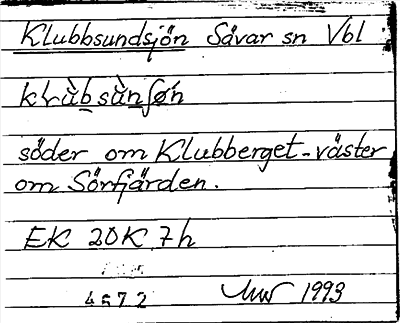 Klubbsundsjön Sävar sn Vbl
söder om Klubberget - väster
om Sörfjärden.
EK 20K 7h
4572
1993